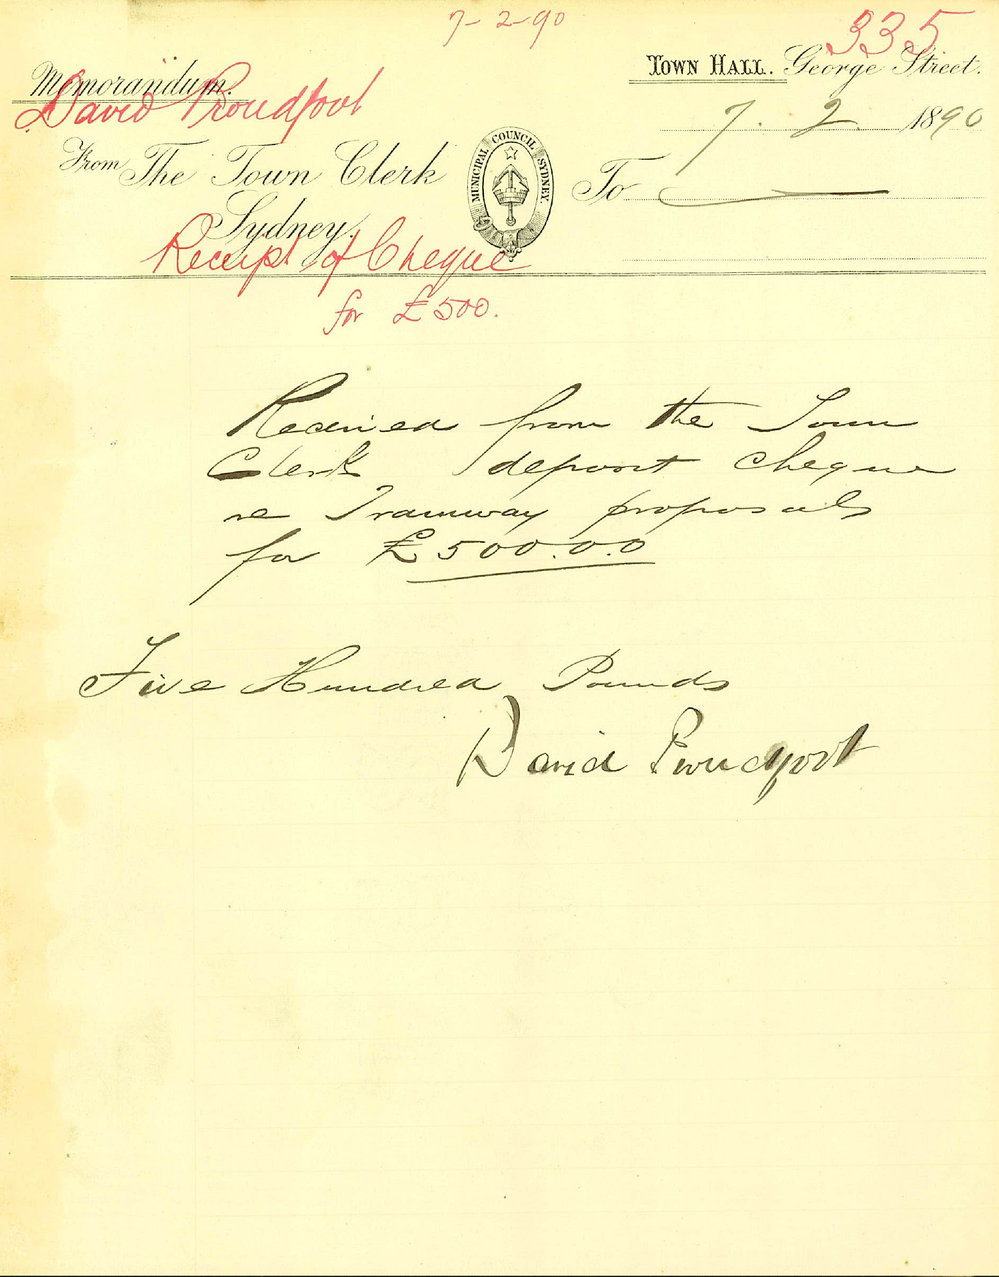 7-2-90
335
Memorandum.
Town Hall. George Street.
David Proudfoot
7. 2. 1890
From The Town Clerk
MUNICIPAL COUNCIL SYDNEY.
To
Sydney.
Receipt of Cheque
for £500.
Received from the Town
Clerk deposit cheque
re Tramway proposals
for £500.0.0
Five Hundred Pounds
David Proudfoot